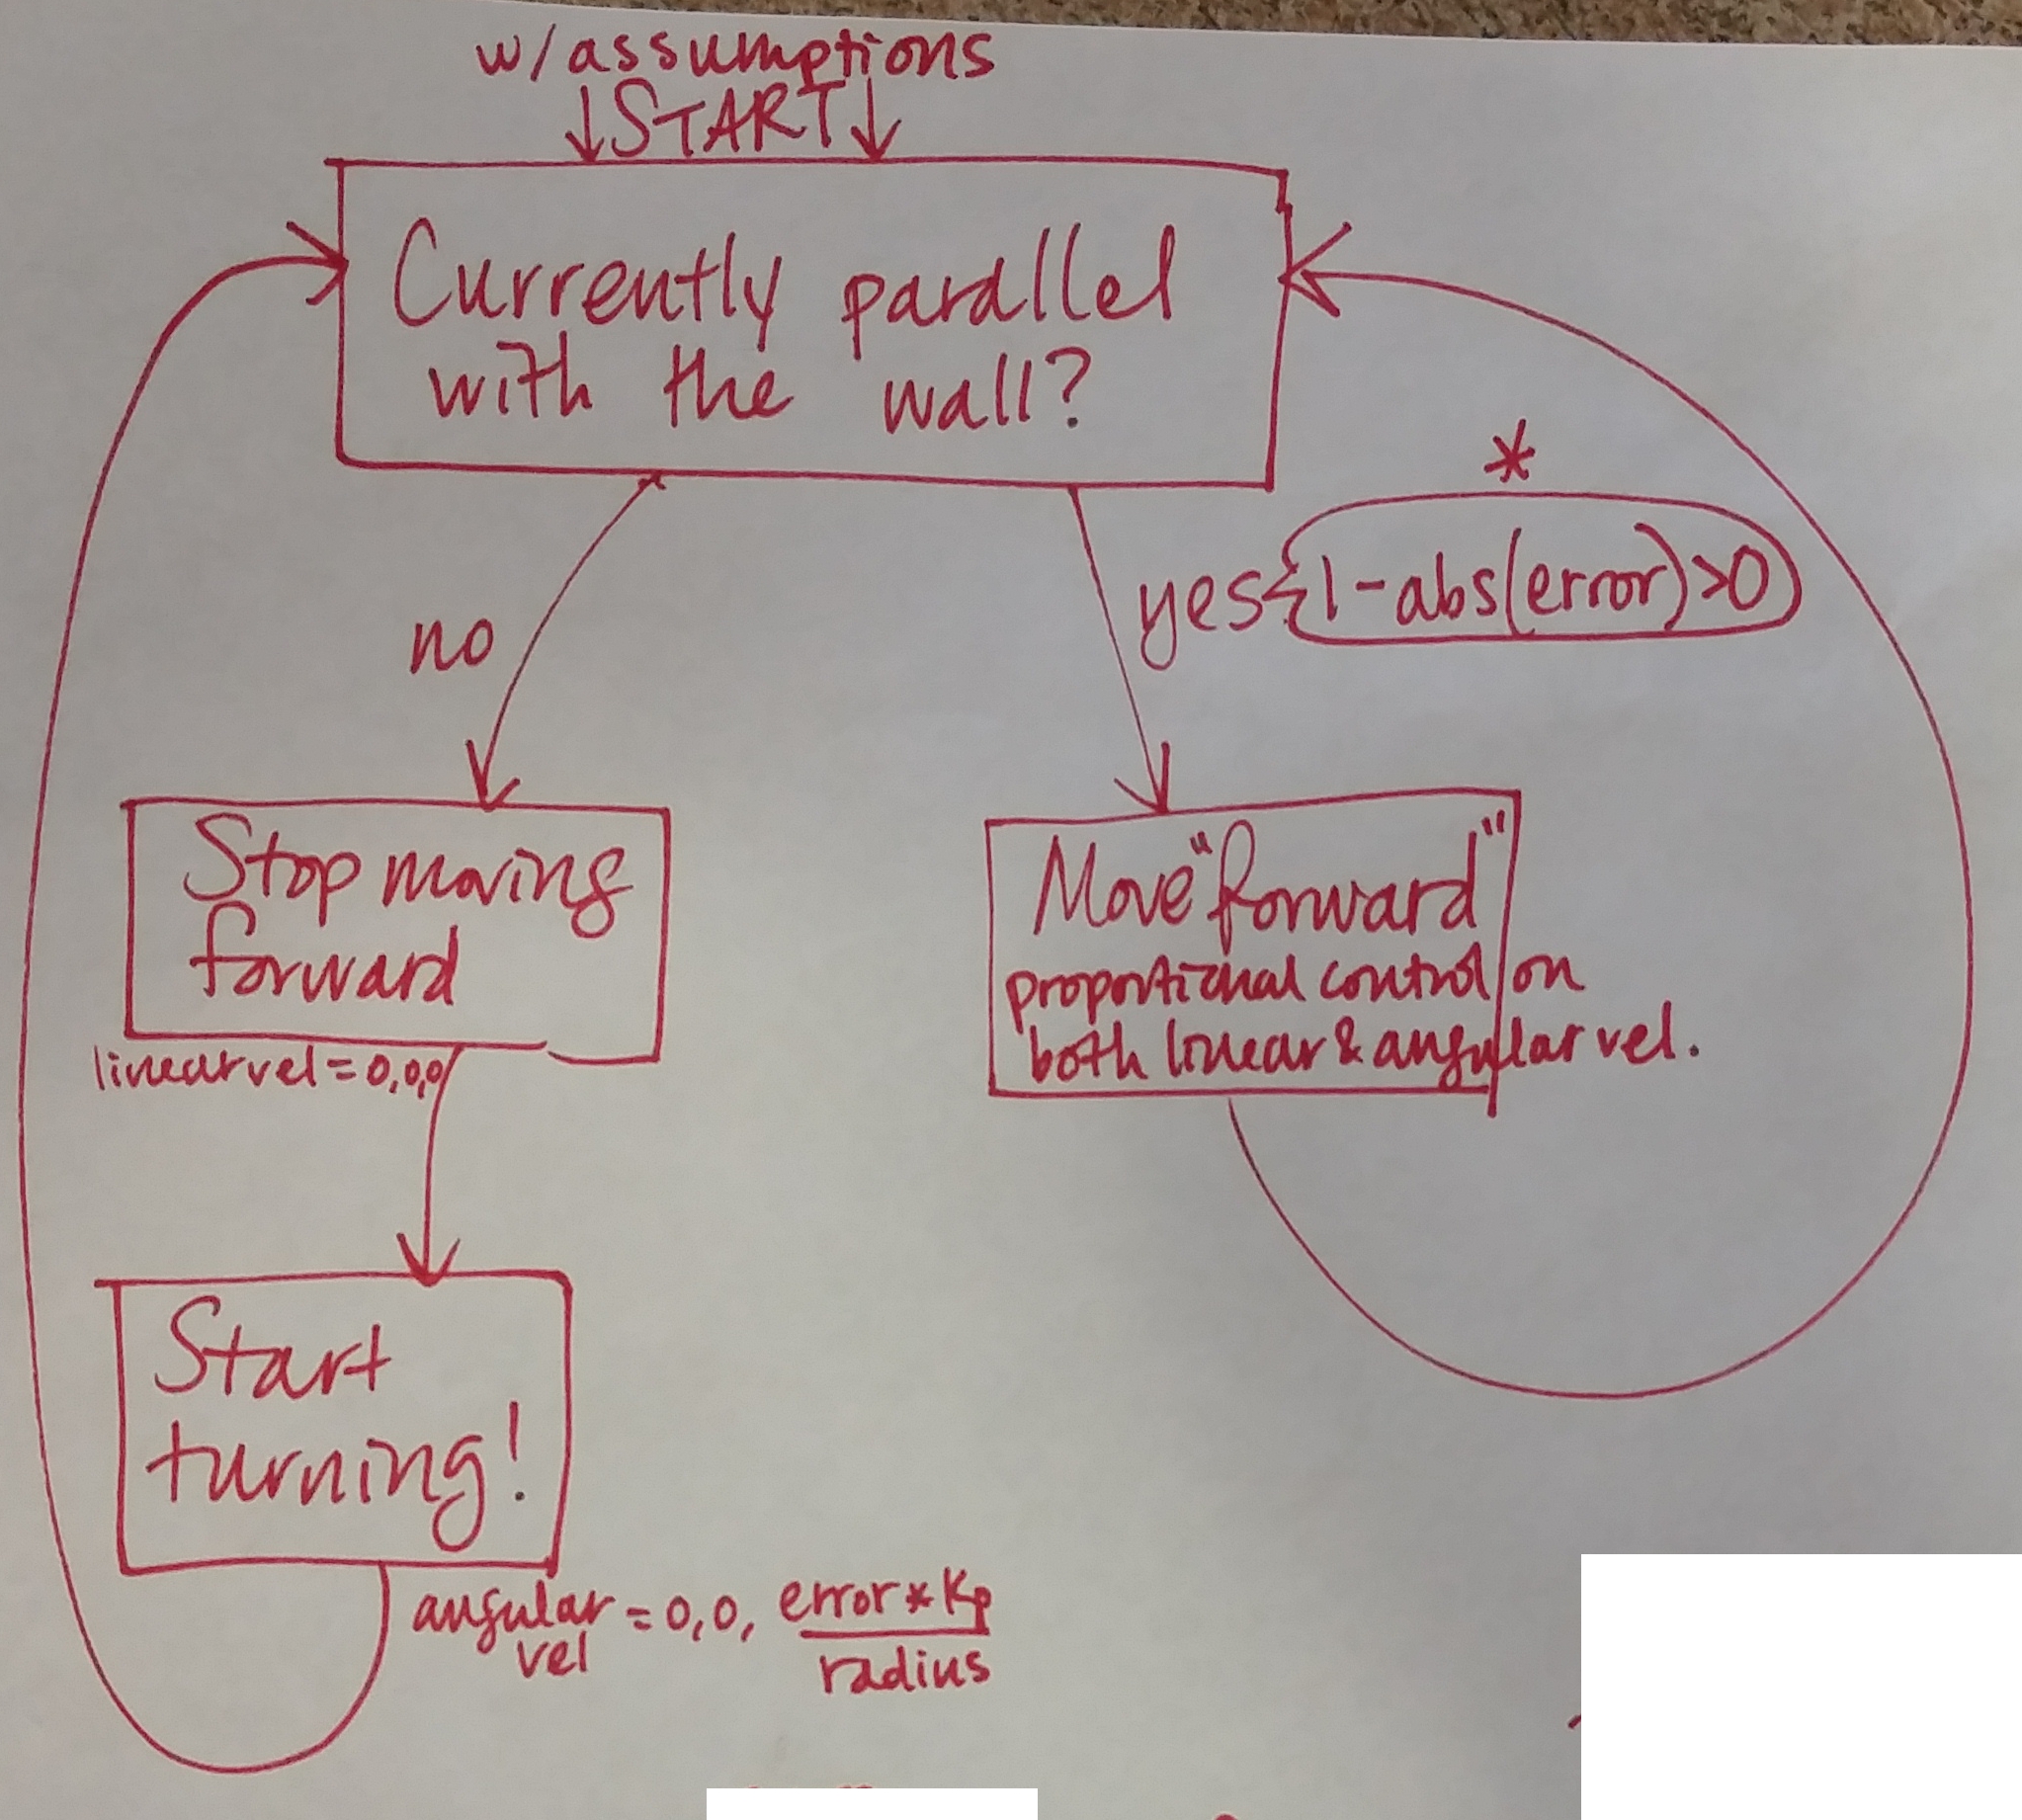 w/assumptions
↓START↓
Currently parallel
with the wall?
*
yes{1-abs(error)>0
no
Stop moving
forward
linear vel=0,0,0
Move "forward"
proportional control on
both linear & angular vel.
Start
turning!
angular
vel
=0,0,
error*Kp
radius